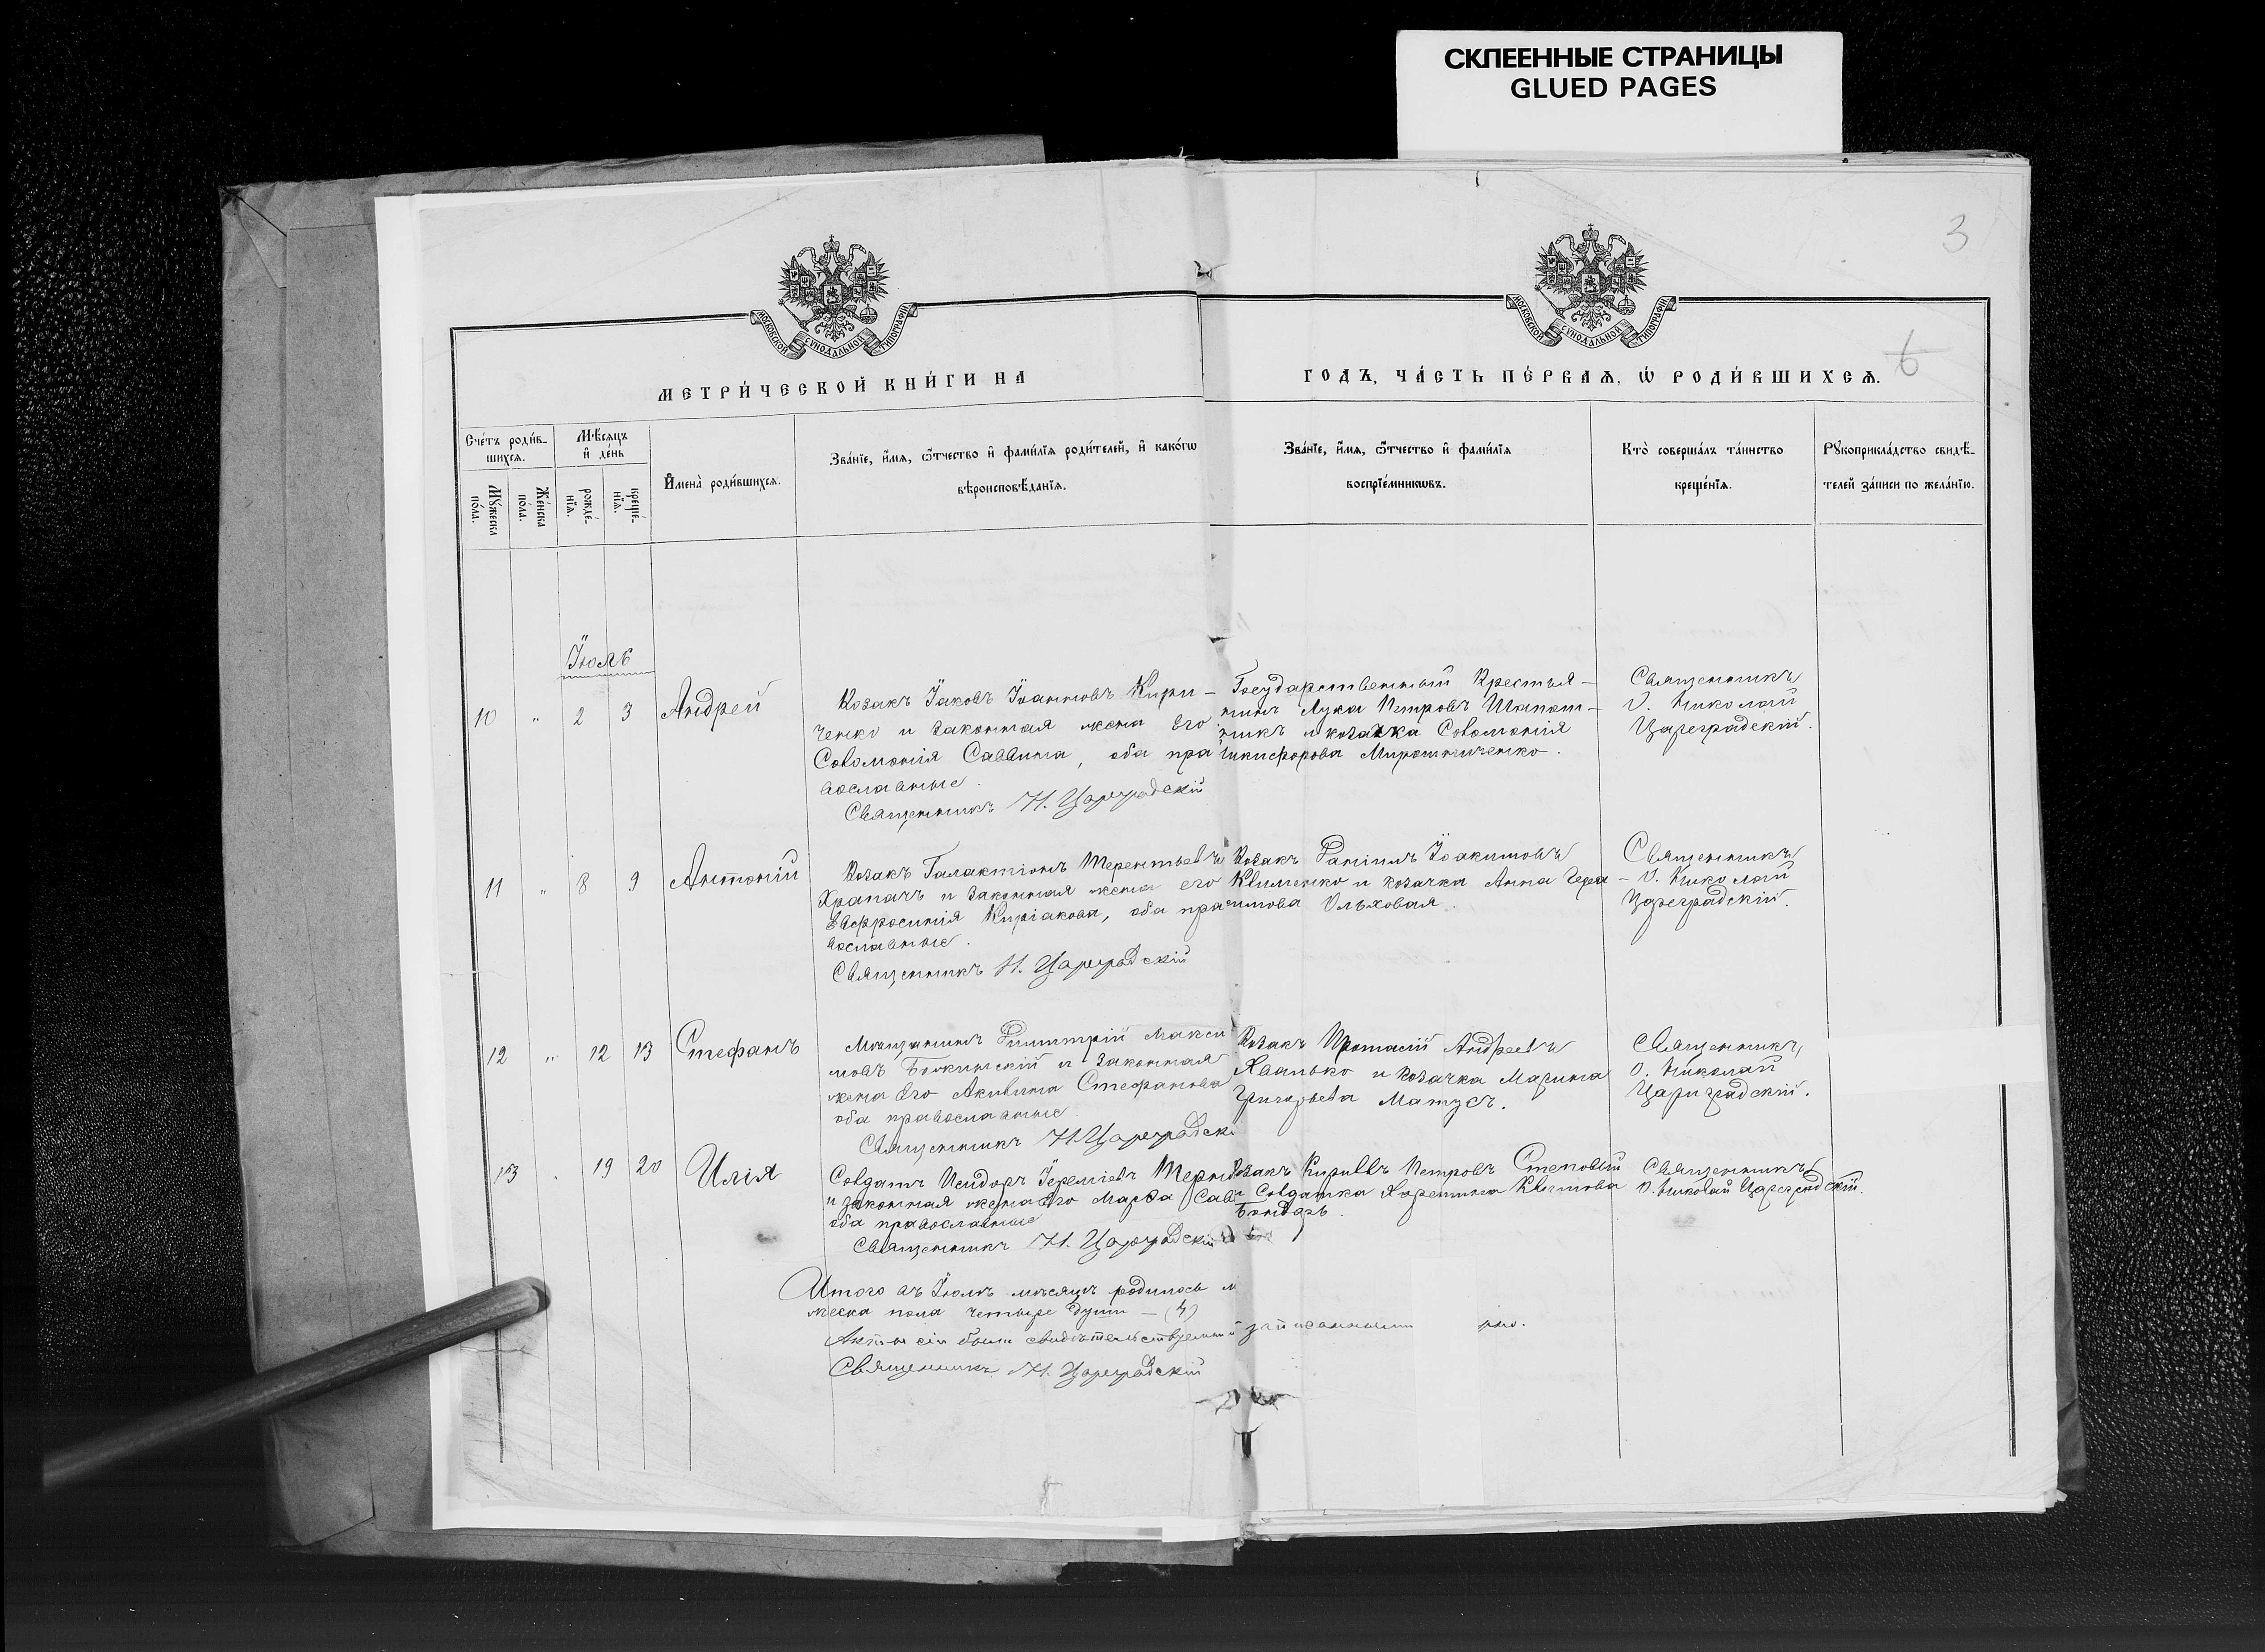 СКЛЕЕННЫЕ СТРАНИЦЫ
GLUED PAGES
3
6
МОСКОВСКОЙ СѴНОДАЛЬНОЙ ТИПОГРАФІИ
МОСКОВСКОЙ СѴНОДАЛЬНОЙ ТИПОГРАФІИ
МЕТРИ́ЧЕСКОЙ КНИ́ГИ НА
ГОДЪ, ЧА́СТЬ ПЕ́РВАѦ, Ѡ҆ РОДИ́ВШИХСѦ.
Сче́тъ роди́в-
шихсѧ.
Мꙋ́жеска
по́ла.
Же́нска
по́ла.
Мѣ́сѧцъ
и҆ де́нь
рожде́-
нїѧ.
креще́-
нїѧ.
И҆мена̀ роди́вшихсѧ.
Зва́нїе, и҆́мѧ, ѻ҆́тчество и҆ фами́лїѧ роди́телей, и҆ како́гѡ
вѣроисповѣ́данїѧ.
Зва́нїе, и҆́мѧ, ѻ҆́тчество и҆ фами́лїѧ
воспрїе́мникѡвъ.
Кто̀ соверша́лъ та́инство
креще́нїѧ.
Рꙋкоприкла́дство свидѣ́-
телей за́писи по жела́нїю.
Іюль
10 " 2 3 Андрей
Козакъ Іаковъ Іоанновъ Кири-
ченко и законная жена его
Соломонія Саввина, оба пра
вославные.
Священникъ Н. Цареградскій
Государственный Крестья-
нинъ Лука Петровъ Шапош-
никъ и козачка Соломонія
Никифорова Мирошниченко.
Священникъ
О. Николай
Цареградскій.
11 " 8 9 Антоній
Козакъ Галактіонъ Терентьевъ
Храпачъ и законная жена его
Евфросинія Киріакова, оба пра
вославные.
Священникъ Н. Цареградскій
Козакъ Даніилъ Іоакимовъ
Клименко и козачка Анна Гера
симова Ольховая.
Священникъ
О. Николай
Цареградскій.
12 " 12 13 Стефанъ
Мѣщанинъ Димитрій Макси
мовъ и законная
жена его Акилина Стефанова
оба православные
Священникъ Н. Цареградскі
Козакъ Протасій Андреевъ
Хванько и козачка Марина
Григорьева Матусъ.
Священникъ
О. Николай
Цариградскій.
13 . 19 20 Илія
Солдатъ Исидоръ Іереміевъ
и законная жена его Марѳа Сав
оба православные
Священникъ Н. Цареградскій
Козакъ Кириллъ Петровъ Степовый
и Солдатка Харитина
Бондарь.
Священникъ
О. Николай Цареградскій.
Итого въ Іюлѣ мѣсяцѣ родилось м
жеска пола четыре души — (4)
Акты сіи были
Священникъ Н. Цареградскій